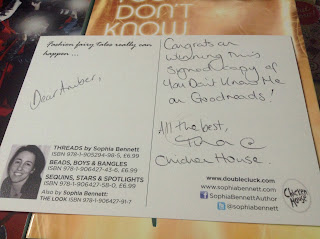 DON'T
KNOW
Fashion fairy tales really can
happen ...
Dear Amber,
Congrats on
winning this
signed copy of
You Don't Know Me
on Goodreads!
All the best,
Chicken House.
THREADS by Sophia Bennett
ISBN 978-1-905294-98-5, £6.99
BEADS, BOYS & BANGLES
ISBN 978-1-906427-43-6, £6.99
SEQUINS, STARS & SPOTLIGHTS
ISBN 978-1-906427-58-0, £6.99
Also by Sophia Bennett:
THE LOOK ISBN 978-1-906427-91-7
www.doublecluck.com
www.sophiabennett.com
SophiaBennettAuthor
@sophiabennett
Chicken
House